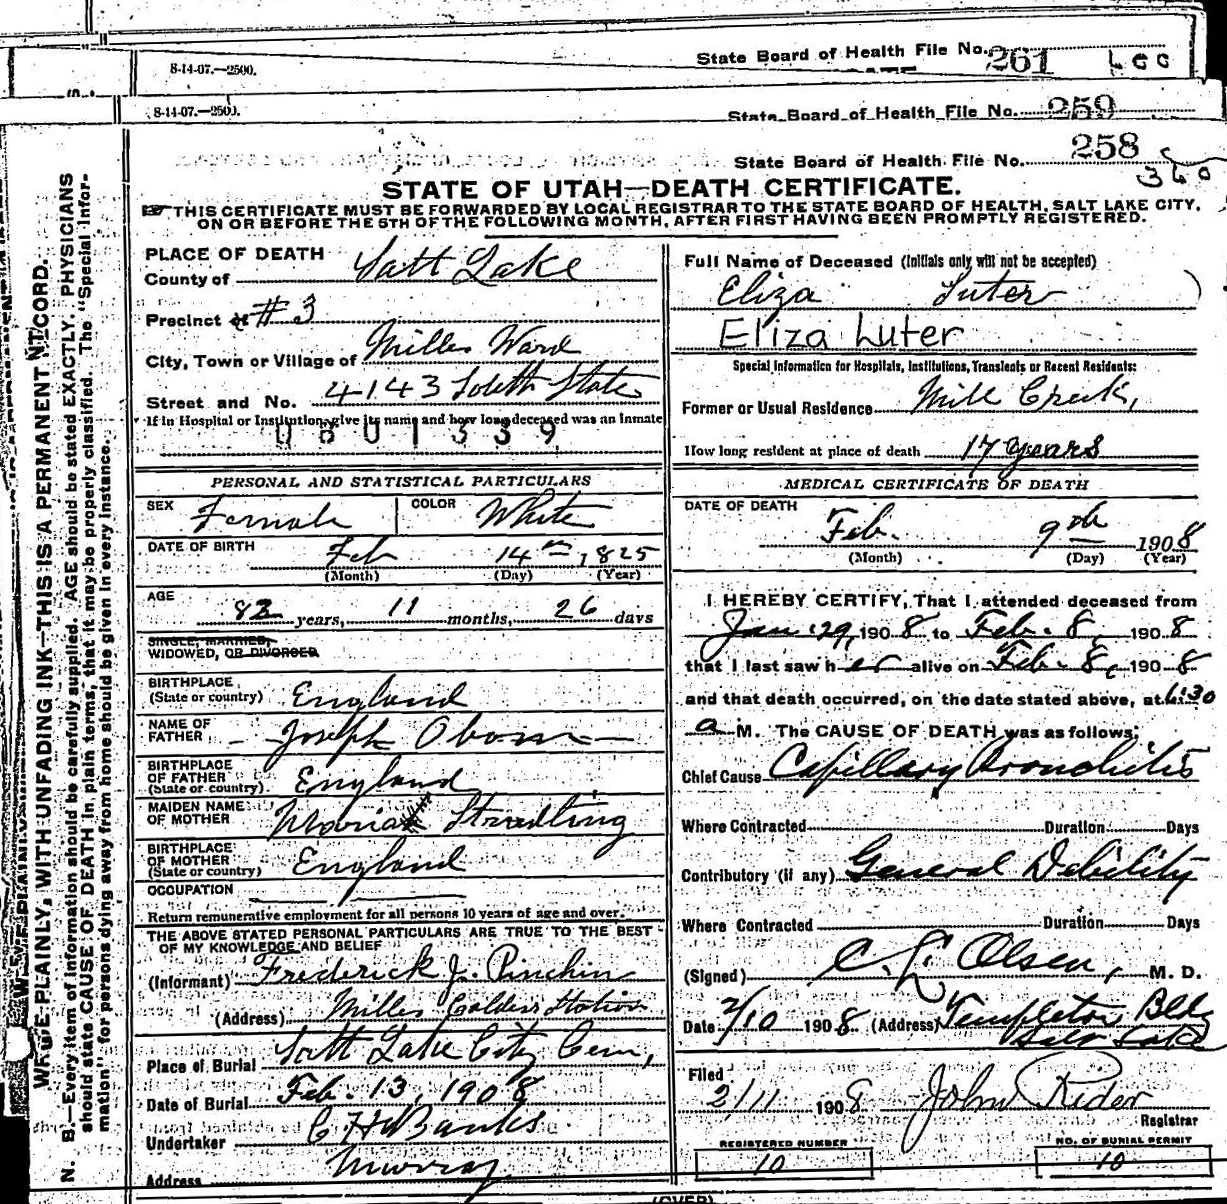 8-14-07.—2500.
State Board of Health File No. 261
8-14-07.—2500.
State Board of Health File No. 259
State Board of Health File No. 258
360
STATE OF UTAH—DEATH CERTIFICATE.
☞ THIS CERTIFICATE MUST BE FORWARDED BY LOCAL REGISTRAR TO THE STATE BOARD OF HEALTH, SALT LAKE CITY,
ON OR BEFORE THE 5TH OF THE FOLLOWING MONTH, AFTER FIRST HAVING BEEN PROMPTLY REGISTERED.
PLACE OF DEATH
County of Salt Lake
Precinct of #3
City, Town or Village of Milles Ward
Street and No. 4143 South State
If in Hospital or Institution, give its name and how long deceased was an inmate
PERSONAL AND STATISTICAL PARTICULARS
SEX Female COLOR White
DATE OF BIRTH Feb 14th, 1825
(Month) (Day) (Year)
AGE
82 years, 11 months, 26 days
SINGLE, MARRIED,
WIDOWED, OR DIVORCED
BIRTHPLACE
(State or country) England
NAME OF
FATHER Joseph Oborn
BIRTHPLACE
OF FATHER
(State or country) England
MAIDEN NAME
OF MOTHER Maria Stradling
BIRTHPLACE
OF MOTHER
(State or country) England
OCCUPATION
Return remunerative employment for all persons 10 years of age and over.
THE ABOVE STATED PERSONAL PARTICULARS ARE TRUE TO THE BEST
OF MY KNOWLEDGE AND BELIEF
(Informant) Frederick J. Pinchin
(Address) Milles Calders Station
Place of Burial Salt Lake City Cem,
Date of Burial Feb. 13, 1908
Undertaker Banks
Address Murray
Full Name of Deceased (Initials only will not be accepted)
Eliza Luter
Eliza Luter
Special Information for Hospitals, Institutions, Transients or Recent Residents:
Former or Usual Residence Mill Creek,
How long resident at place of death 17 years
MEDICAL CERTIFICATE OF DEATH
DATE OF DEATH
Feb. 9th 1908
(Month) (Day) (Year)
I HEREBY CERTIFY, That I attended deceased from
Jan. 29, 1908 to Feb. 8, 1908
that I last saw her alive on Feb. 8, 1908
and that death occurred, on the date stated above, at 6:30
a M. The CAUSE OF DEATH was as follows:
Chief Cause Capillary Bronchitis
Where Contracted Duration Days
Contributory (if any) General Debility
Where Contracted Duration Days
(Signed) C. L. Olsen, M. D.
Date 2/10 1908 (Address) Templeton Bldg
Salt Lake
Filed
2/11 1908 John Rider
Registrar
REGISTERED NUMBER
10
NO. OF BURIAL PERMIT
10
(OVER)
WRITE PLAINLY, WITH UNFADING INK—THIS IS A PERMANENT RECORD.
N. B.—Every item of information should be carefully supplied. AGE should be stated EXACTLY. PHYSICIANS
should state CAUSE OF DEATH in plain terms, that it may be properly classified. The "Special Infor-
mation" for persons dying away from home should be given in every instance.